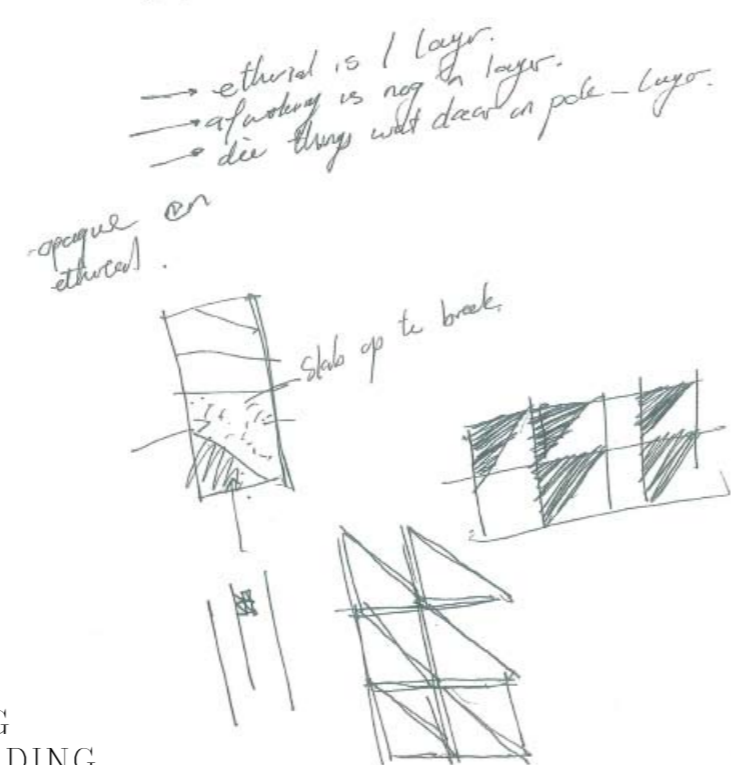 → ethurial is 1 layr.
→ afwerking is nog 'n layer.
→ die things wat daar an pole - layer.
-opaque en
ethireal.
Slab op te breek.
G
DING